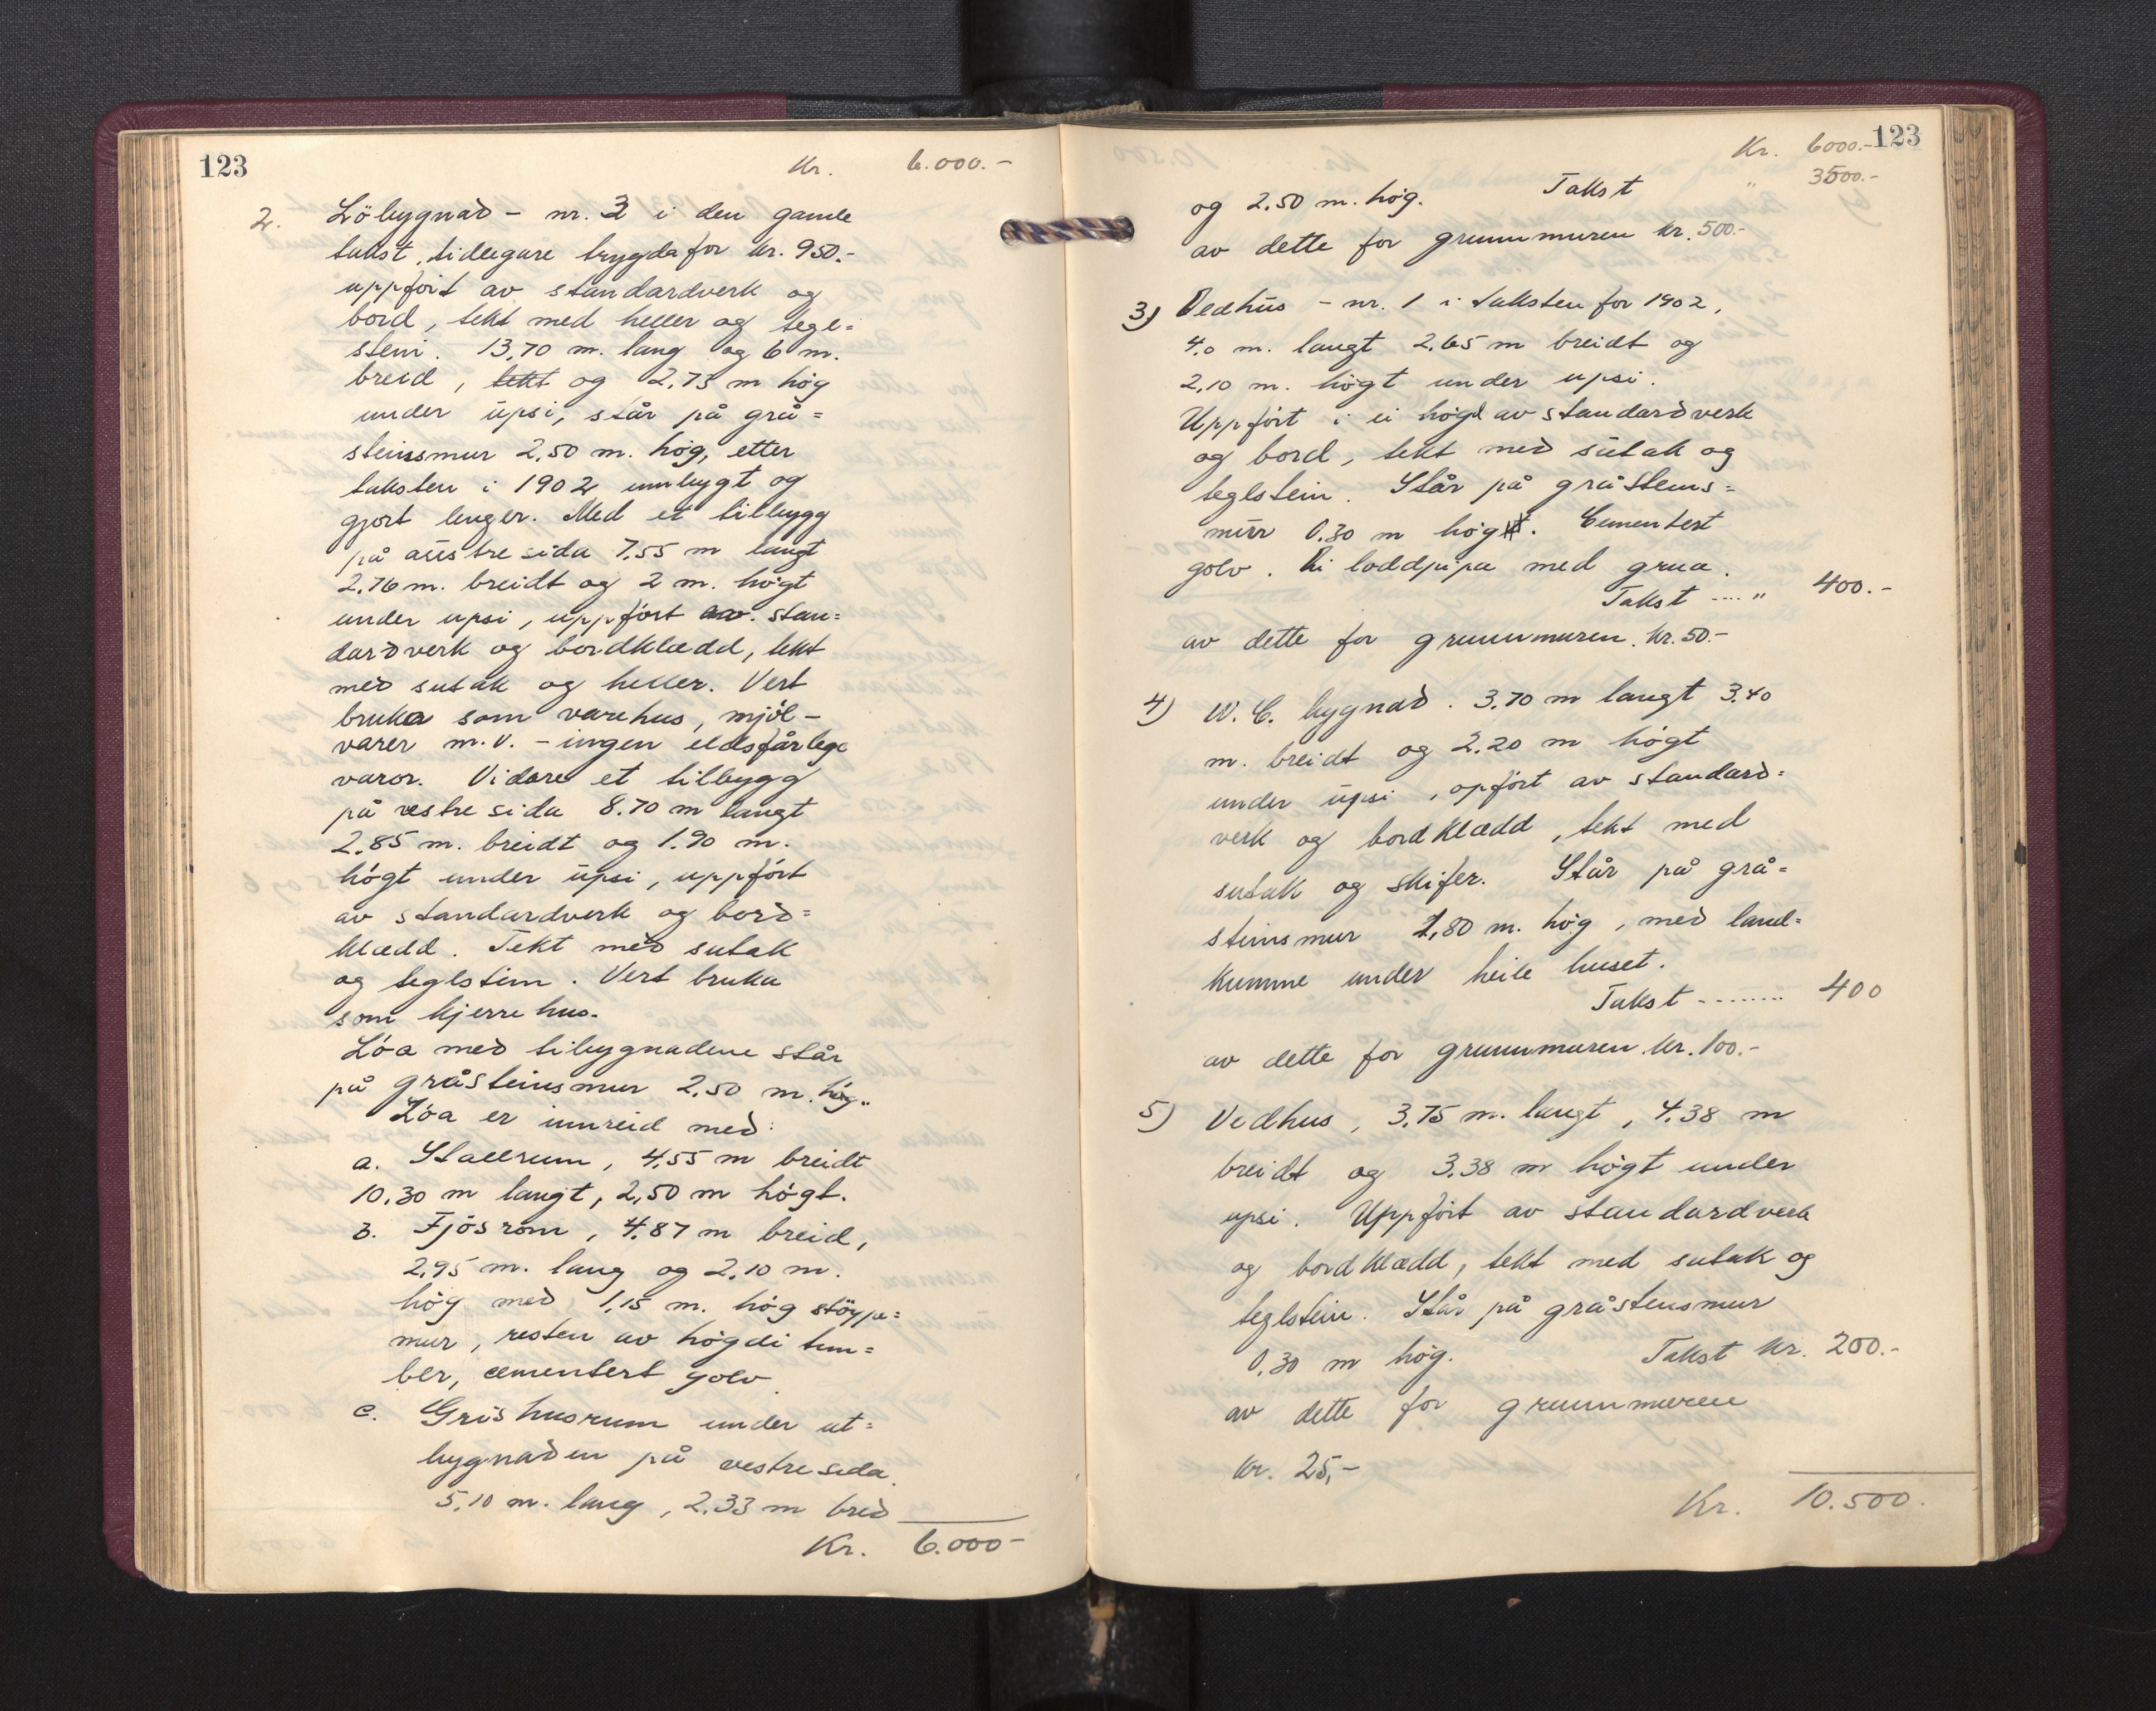 123
Kr. 6.000.-
2. Löbygnad - nr. 3 i den gamle
takst, tidlegare trygda for kr. 950.-
uppført av standardverk og
bord, tekt med heller og tegl=
stein. 13,70 m. lang og 6 m.
breid, tekt og 2,73 m høg
under upsi, står på grå=
steinsmur 2,50 m. høg, etter
taksten i 1902 umbygt og
gjort lenger. Med et tilbygg
på austre sida 7.55 m langt
2,76 m. breidt og 2 m. högt
under upsi, uppført av stan=
dardverk og bordklædd, tekt
med sutak og heller. Vert
bruka som varehus, mjöl-
varer m.v. - ingen eldsfårlege
varor. Vidare et tilbygg
på vestre sida 8.70 m langt
2.85 m. breidt og 1.90 m.
högt under upsi, uppfört
av standardverk og bord=
klædd. Tekt med sutak
og teglstein. Vert bruka
som kjerrehus.
Löa med tilbygnadene står
på gråsteinsmur 2,50 m. høg.
Löa er innreid med:
a. Stallrum, 4,55 m breidt
10.30 m langt, 2,50 m högt.
b. Fjösrom, 4,87 m breid,
2,95 m. lang og 2,10 m.
hög med 1,15 m. hög stöype=
mur, resten av högdi tim=
ber, cementert golv.
c. Grishusrum under ut=
bygnaden på vestre sida.
5,10 m. lang, 2.33 m breid
Kr. 6.000-
123
Kr. 6000.-
" 3500.-
og 2.50 m. høg. Takst
av dette for grunnmuren kr. 500.-
3) Vedhus - nr. 1 i taksten for 1902,
4,0 m. langt 2,65 m breidt og
2,10 m. högt under upsi.
Uppfört i ei högd av standardverk
og bord, tekt med sutak og
teglstein. Står på gråsteins=
mur 0.30 m høg. Cementert
golv. Ei loddpipa med grua.
Takst .... " 400.-
av dette for grunnmuren. kr. 50.-
4) W.C. bygnad. 3.70 m langt 3.40
m. breidt og 2.20 m högt
under upsi, opfört av standard=
verk og bordklædd, tekt med
sutak og skifer. Står på grå=
steinsmur 1,80 m. høg, med land=
kumme under heile huset.
Takst -------- 400
av dette for grunnmuren kr. 100.-
5) Vedhus, 3,75 m. langt, 4.38 m
breidt og 3.38 m högt under
upsi. Uppført av standardverk
og bordklædd, tekt med sutak og
teglstein. Står på gråstensmur
0.30 m høg. Takst kr. 200.-
av dette for grunnmuren
kr. 25,-
Kr. 10.500.